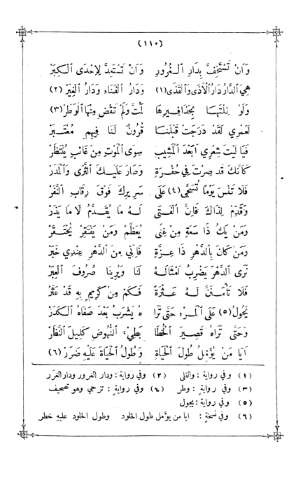 (١١٠)
وَانْ تَسْتَخِفَّ بِدَارِ الْغُرُورِ وَانْ تَسْتَعِدَّ لِاِحْدَى الْكِبَرْ
هِيَ الدَّارُ دَارُ الْاَذَى وَالْقَذَى (١) وَدَارُ الْفَنَاءِ وَدَارُ الْغِيَرْ (٢)
وَلَوْ نِلْتَهَا بِحَذَافِيرِهَا لَمُتَّ وَلَمْ تَقْضِ مِنْهَا الْوَطَرْ (٣)
لَعَمْرِي لَقَدْ دَرَجَتْ قَبْلَنَا قُرُونٌ لَنَا فِيهِمِ مُعْتَبَرْ
فَيَا لَيْتَ شِعْرِي اَبَعْدَ الْمَشِيبِ سِوَى الْمَوْتِ مِنْ غَائِبٍ يُنْتَظَرْ
كَاَنَّكَ قَدْ صِرْتَ فِي حُفْرَةٍ وَصَارَ عَلَيْكَ الثَّرَى وَالْمَدَرْ
فَلَا تَنْسَ يَوْمًا تُسَجَّى (٤) عَلَى سَرِيرِكَ فَوْقَ رِقَابِ النَّفَرْ
وَقَدِّمْ لِذَاكَ فَاِنَّ الْفَتَى لَهُ مَا يُقَدِّمُ لَا مَا يَذَرْ
وَمَنْ يَكُ ذَا سَعَةٍ مِنْ غِنًى يُعَظَّمْ وَمَنْ يَفْتَقِرْ يُحْتَقَرْ
وَمَنْ كَانَ بِالدَّهْرِ ذَا عِزَّةٍ فَاِنِّي مِنَ الدَّهْرِ عِنْدِي خَبَرْ
تَرَى الدَّهْرَ يَضْرِبُ اَمْثَالَهُ لَنَا وَيُرِينَا صُرُوفَ الْعِبَرْ
فَلَا تَأْمَنَنَّ لَهُ عَثْرَةً فَكَمْ مِنْ كَرِيمٍ بِهِ قَدْ عَثَرْ
يَحُولُ (٥) عَلَى الْمَرْءِ حَتَّى تَرَاهُ يَشْرَبُ بَعْدَ صَفَاهُ الْكَدَرْ
وَحَتَّى تَرَاهُ قَصِيرَ الْخُطَا بَطِيءَ النُّهُوضِ كَلِيلَ النَّظَرْ
اَيَا مَنْ يُؤَمِّلُ طُولَ الْحَيَاةِ وَطُولُ الْحَيَاةِ عَلَيْهِ ضَرَرْ (٦)
(١) وفي رواية: والقلى (٢) وفي رواية: ودار الغرور ودار الغرر
(٣) وفي رواية: وطر (٤) وفي رواية: ترحي وهو تصحيف
(٥) وفي رواية: يجول
(٦) وفي نسخة: ايا من يؤمل طول الخلود وطول الخلود عليه خطر